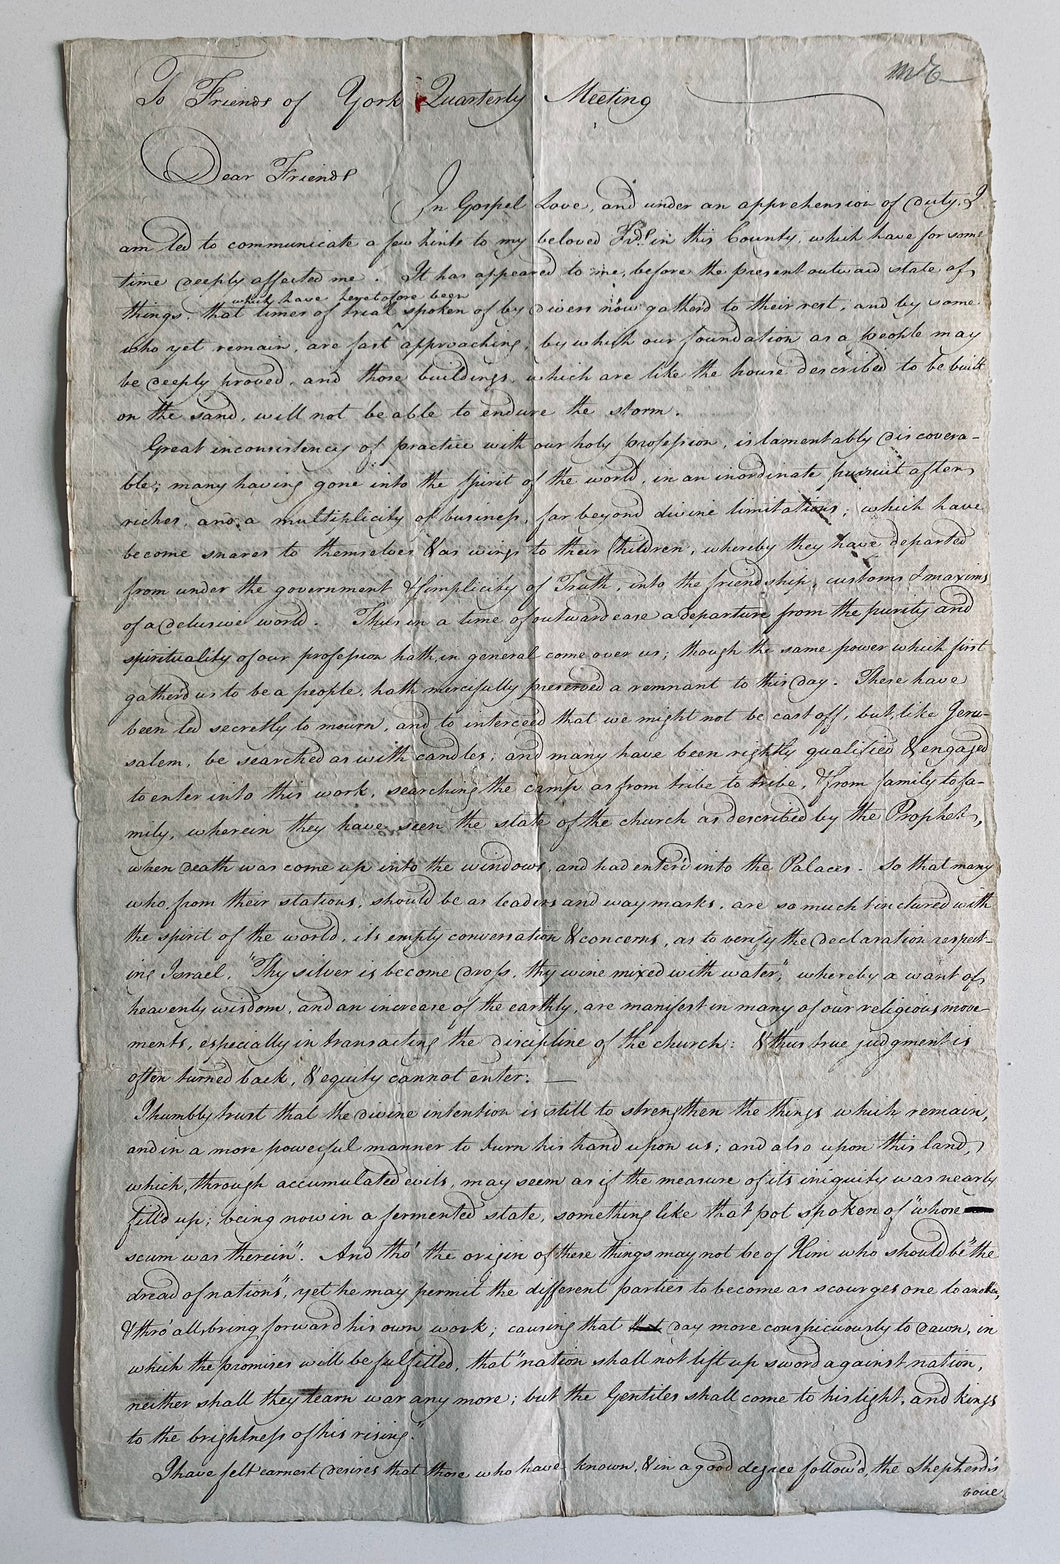 To Friends of York Quarterly Meeting
Dear Friends
In Gospel Love, and under an apprehension of duty, I
am led to communicate a few hints to my beloved Frds. in this County, which have for some
time deeply affected me. It has appeared to me, before the present outward state of
which have heretofore been
things, that times of trial spoken of by divers now gather'd to their rest, and by some
who yet remain, are fast approaching, by which our foundation as a People may
be deeply proved, and those buildings, which are like the house described to be built
on the sand, will not be able to endure the storm.
Great inconsistency of practice with our holy profession, is lamentably discovera-
ble; many having gone into the spirit of the world, in an inordinate pursuit after
riches, and a multiplicity of business, far beyond divine limitations; which have
become snares to themselves & as wings to their Children, whereby they have departed
from under the government & simplicity of Truth, into the friendship, customs & maxims
of a delusive world. Thus in a time of outward ease a departure from the purity and
spirituality of our profession hath in general come over us; though the same power which first
gather'd us to be a people, hath mercifully preserved a remnant to this day. These have
been led secretly to mourn, and to interceed that we might not be cast off, but, like Jeru-
salem, be searched as with candles; and many have been rightly qualified & engaged
to enter into this work, searching the camp as from tribe to tribe, & from family to fa-
mily, wherein they have seen the state of the church as described by the Prophet,
when death was come up into the windows, and had enter'd into the Palaces. So that many
who, from their stations, should be as leaders and way marks, are so much tinctured with
the spirit of the world, its empty conversation & concerns, as to verify the declaration respect-
ing Israel, "Thy silver is become dross, thy wine mixed with water," whereby a want of
heavenly wisdom, and an increase of the earthly, are manifest in many of our religious move-
ments, especially in transacting the discipline of the church: & thus true judgment is
often turned back, & equity cannot enter. —
I humbly trust that the divine intention is still to strengthen the things which remain,
and in a more powerful manner to turn his hand upon us; and also upon this land,
which, through accumulated evils, may seem as if the measure of its iniquity was nearly
fill'd up; being now in a fermented state, something like that pot spoken of "whose
scum was therein". And tho' the origin of these things may not be of Him who should be "the
dread of nations", yet he may permit the different parties to become as scourges one to another,
& thro' all, bring forward his own work; causing that day more conspicuously to dawn, in
which the promises will be fulfilled, that "nation shall not lift up sword against nation,
neither shall they learn war any more; but the Gentiles shall come to his light, and kings
to the brightness of his rising."
I have felt earnest desires that those who have known, & in a good degree follow'd, the Shepherd's
voice